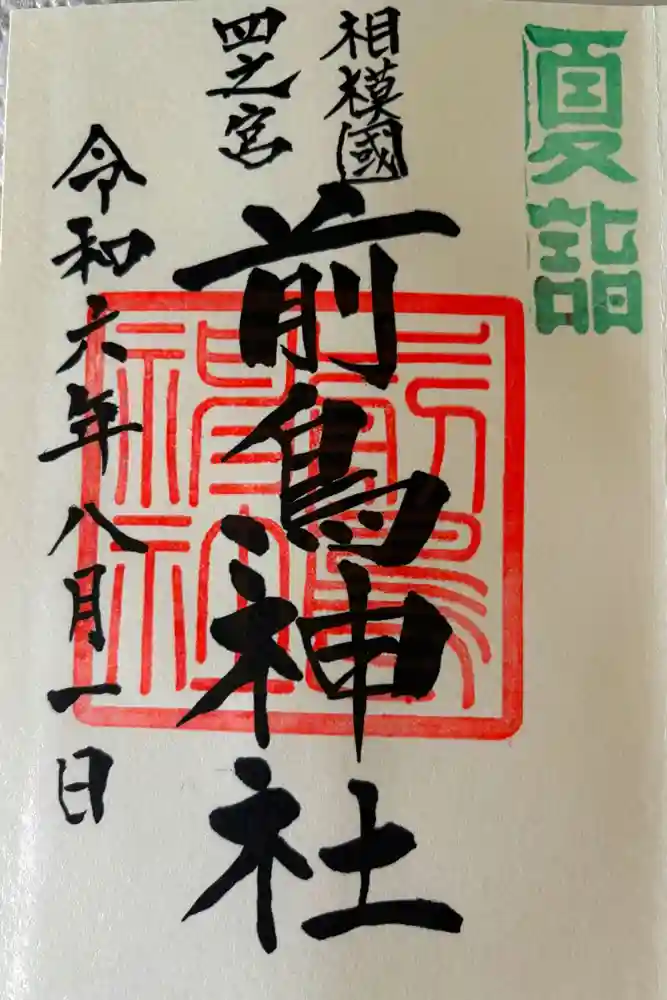 夏詣
相模國
四之宮
前鳥神社
令和六年八月一日
前鳥神社